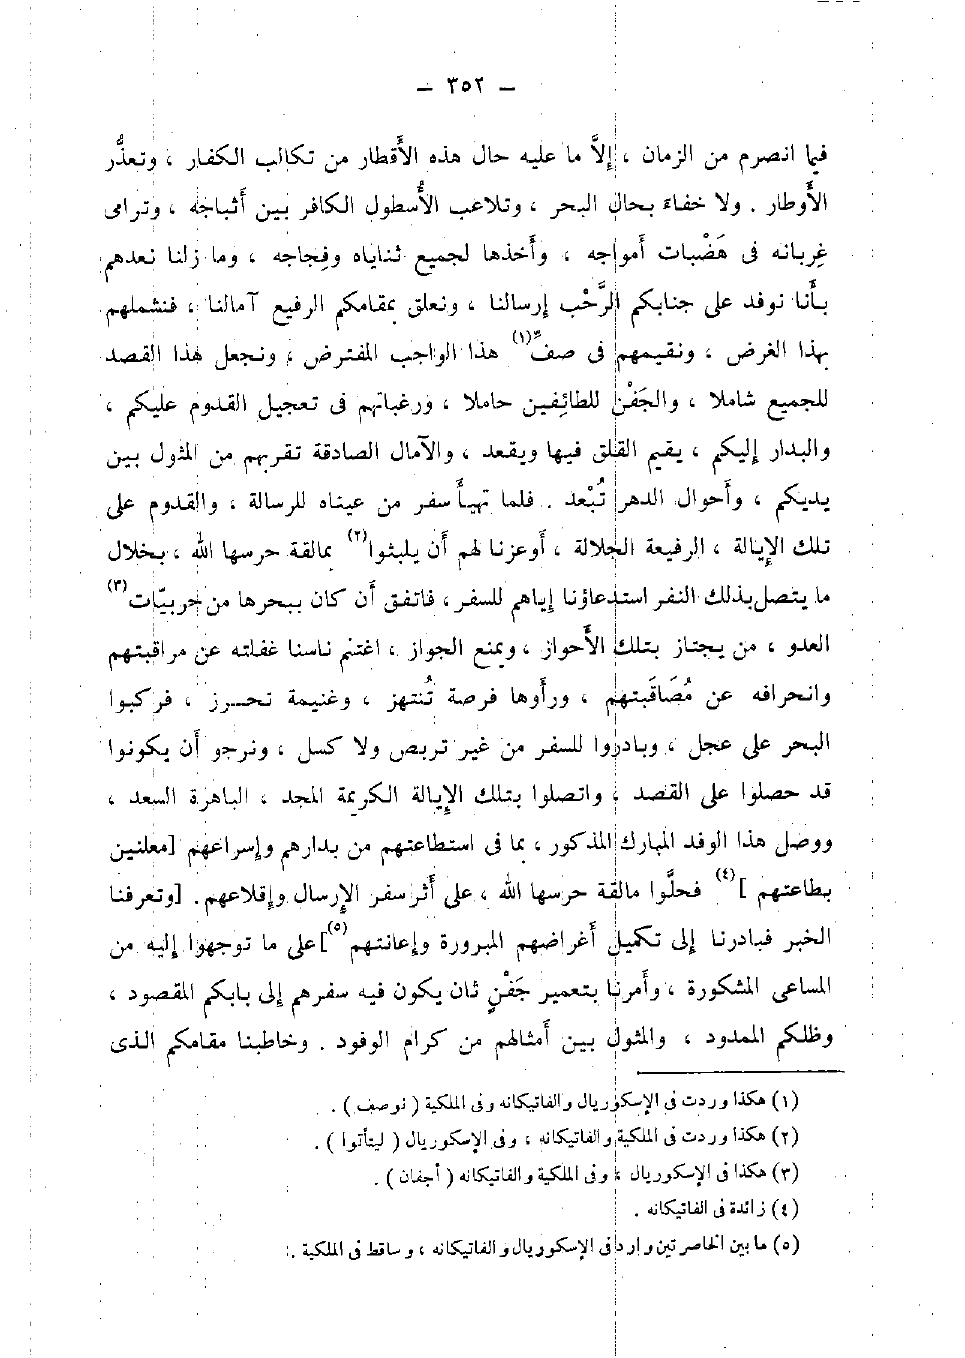 — ٣٥٢ —
فيما انصرم من الزمان ، إلاَّ ما عليه حال هذه الأَقطار من تكالب الكفار ، وتعذُّر
الأَوطار . ولا خفاء بحال البحر ، وتلاعب الأُسطول الكافر بين أَثباجه ، وترامى
غِربانه فى هَضْبات أَمواجه ، وأَخذها لجميع ثناياه وفِجاجه ، وما زلنا نعدهم
بأَنا نوفد على جنابكم الرَّحْب إرسالنا ، ونعلق بمقامكم الرفيع آمالنا ، فنشملهم
بهذا الغرض ، ونقيمهم فى صف(١) هذا الواجب المفترض ، ونجعل هذا القصد
للجميع شاملا ، والجَفْن للطائِفين حاملا ، ورغباتهم فى تعجيل القدوم عليكم ،
والبدار إليكم ، يقيم القلق فيها ويقعد ، والآمال الصادقة تقربهم من المثول بين
يديكم ، وأَحوال الدهر تُبْعد . فلما تهيأَ سفر من عيناه للرسالة ، والقدوم على
تلك الإيالة ، الرفيعة الجلالة ، أَوعزنا لهم أَن يلبثوا(٢) بمالقة حرسها الله ، بخلال
ما يتصل بذلك النفر استدعاؤنا إياهم للسفر ، فاتفق أَن كان ببحرها من حربيّات(٣)
العدو ، من يجتاز بتلك الأَحواز ، ويمنع الجواز ، اغتنم ناسنا غفلته عن مراقبتهم
وانحرافه عن مُصَاقَبتهم ، ورأَوها فرصة تُنتهز ، وغنيمة تحرز ، فركبوا
البحر على عجل ، وبادروا للسفر من غير تربص ولا كسل ، ونرجو أَن يكونوا
قد حصلوا على القصد ، واتصلوا بتلك الإيالة الكريمة المجد ، الباهرة السعد ،
ووصل هذا الوفد المبارك المذكور ، بما فى استطاعتهم من بدارهم وإسراعهم [معلنين
بطاعتهم ](٤) فحلَّوا مالقة حرسها الله ، على أَثر سفر الإرسال وإقلاعهم . [وتعرفنا
الخبر فبادرنا إلى تكميل أَغراضهم المبرورة وإعانتهم(٥)] على ما توجهوا إليه من
المساعى المشكورة ، وأَمرنا بتعمير جَفْنٍ ثان يكون فيه سفرهم إلى بابكم المقصود ،
وظلكم الممدود ، والمثول بين أَمثالهم من كرام الوفود . وخاطبنا مقامكم الذى
(١) هكذا وردت فى الإسكوريال والفاتيكانه وفى الملكية ( نوصف ) .
(٢) هكذا وردت فى الملكية والفاتيكانه ، وفى الإسكوريال ( ليتأتوا ) .
(٣) هكذا فى الإسكوريال ، وفى الملكية والفاتيكانه ( أجفان ) .
(٤) زائدة فى الفاتيكانه .
(٥) ما بين الخاصرتين وارد فى الإسكوريال والفاتيكانه ، وساقط فى الملكية .